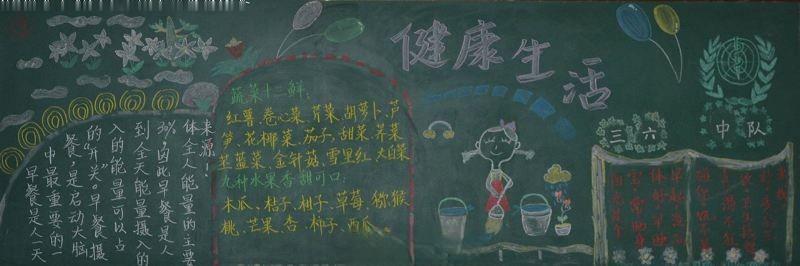 健康生活
早餐是人一天
中最重要的一
餐,是启动大脑
的“开关”。早餐摄
入的能量可以占
到全天能量摄入的
30%,因此早餐是人
体全人能量的主要
来源!
蔬菜十二鲜:
红薯、卷心菜、芹菜、胡萝卜、芦
笋、花椰菜、茄子、甜菜、荠菜
苤蓝菜、金针菇、雪里红、大白菜
九种水果香甜可口:
木瓜、桔子、柑子、草莓、猕猴
桃、芒果、杏、柿子、西瓜。
三六中队